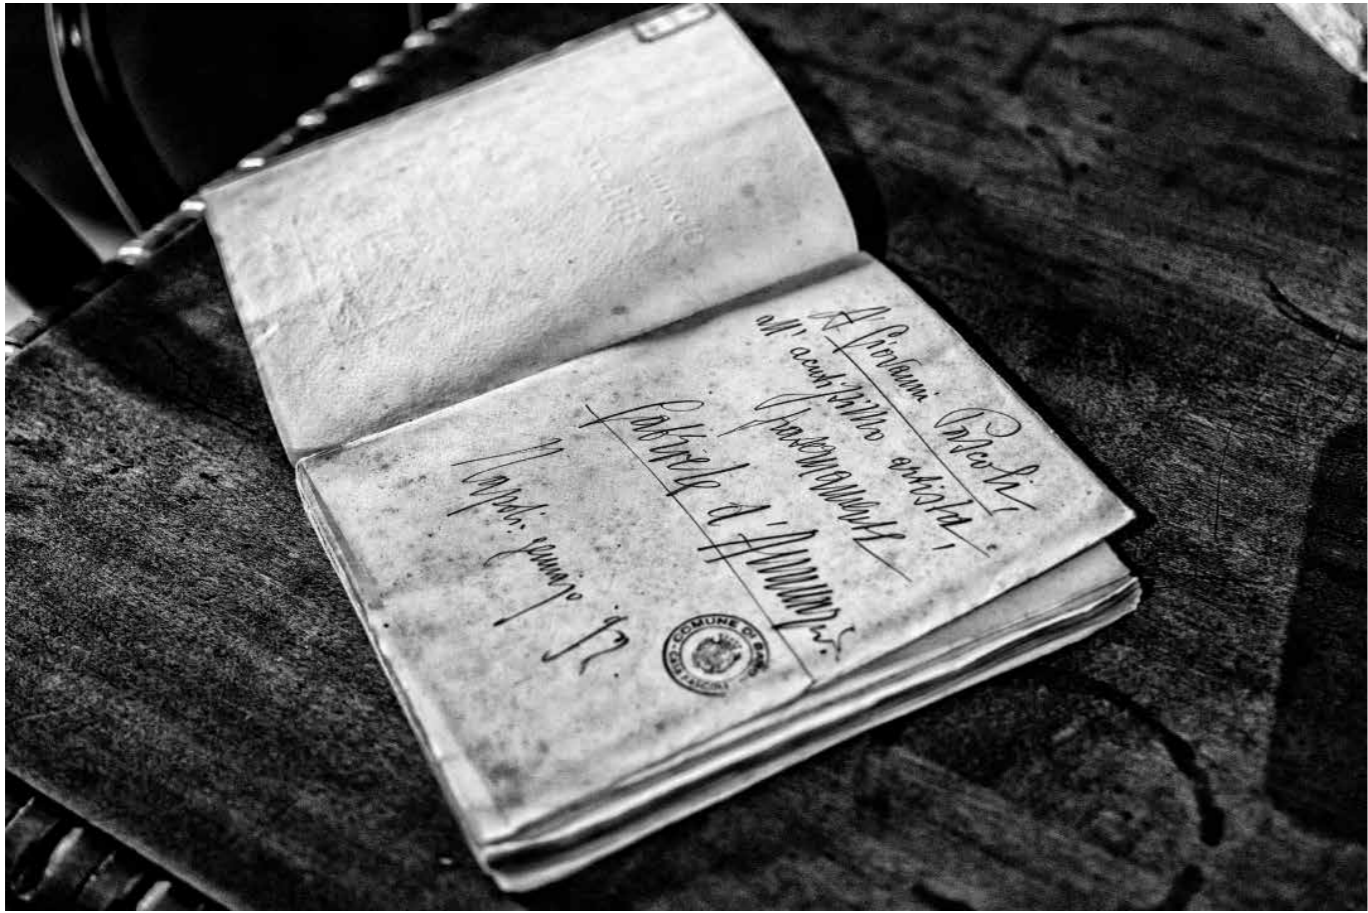 A Giovanni Pascoli
all' acutissimo artista,
fraternamente
Gabriele d'Annunzio.
Napoli: gennajo '92
COMUNE DI BARGA